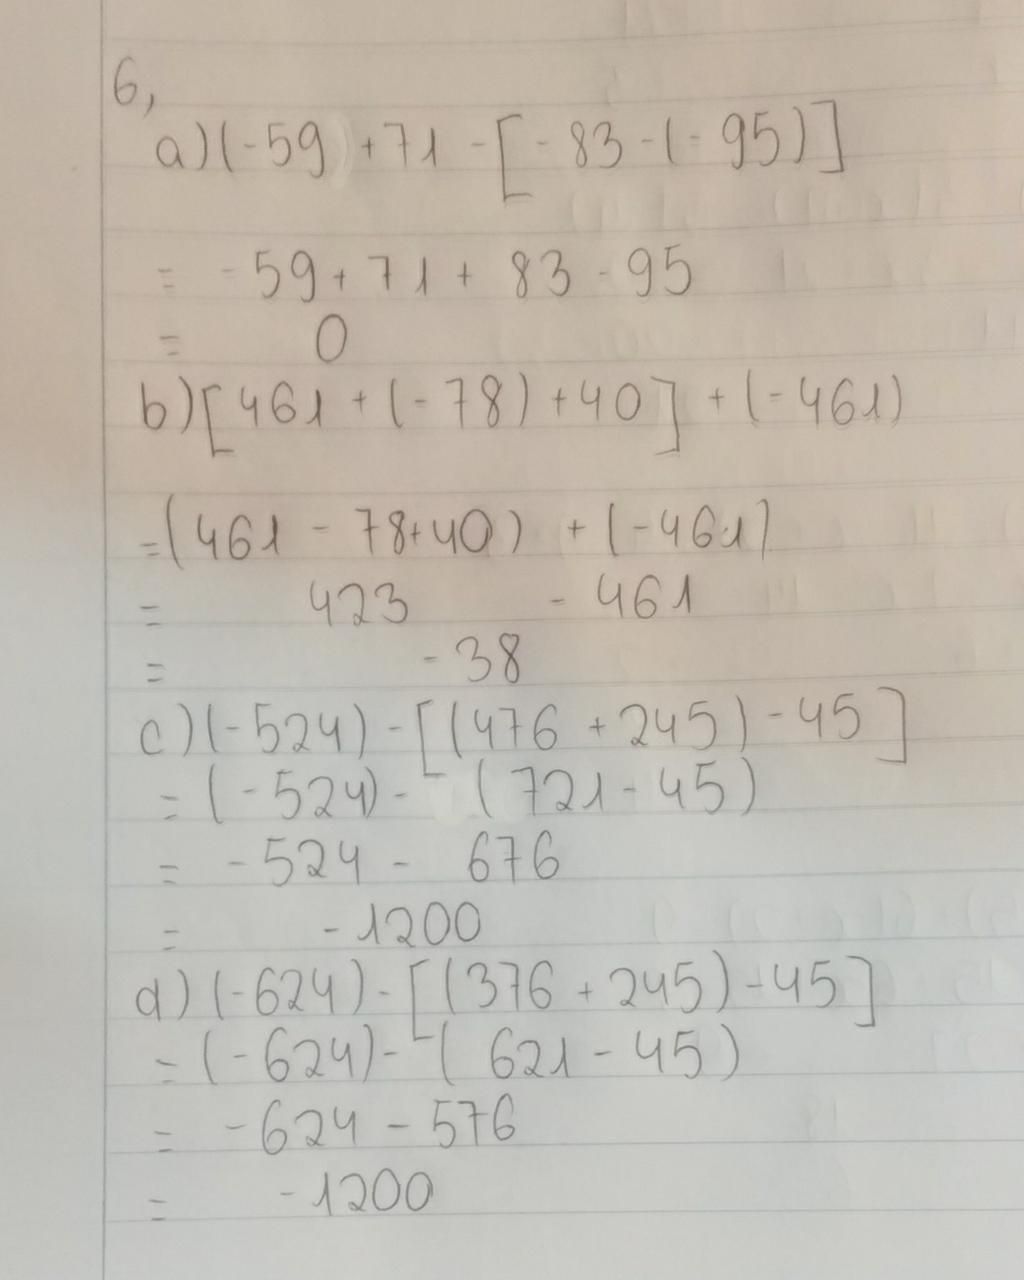 6,
a) (-59) + 71 - [-83 - (-95)]
= -59 + 71 + 83 - 95
= 0
b) [461 + (-78) + 40] + (-461)
= (461 - 78 + 40) + (-461)
= 423 - 461
= -38
c) (-524) - [(476 + 245) - 45]
= (-524) - (721 - 45)
= -524 - 676
= -1200
d) (-624) - [(376 + 245) - 45]
= (-624) - (621 - 45)
= -624 - 576
= -1200